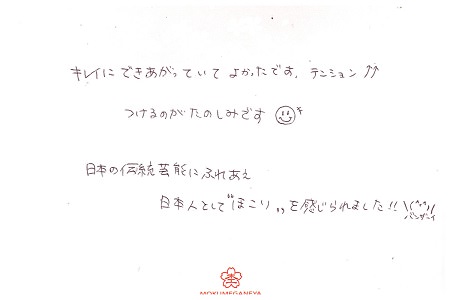 キレイにできあがっていてよかったです。テンション↑↑
つけるのがたのしみです
日本の伝統芸能にふれあえ
日本人として"ほこり"を感じられました!! \(^o^)/
バンザーイ
MOKUMEGANEYA